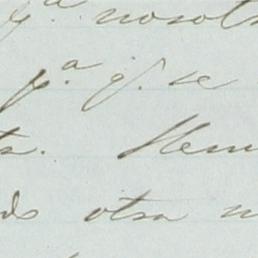 p.ª nosot
p.ª q.ᵉ se
ta. Hem
ds otra